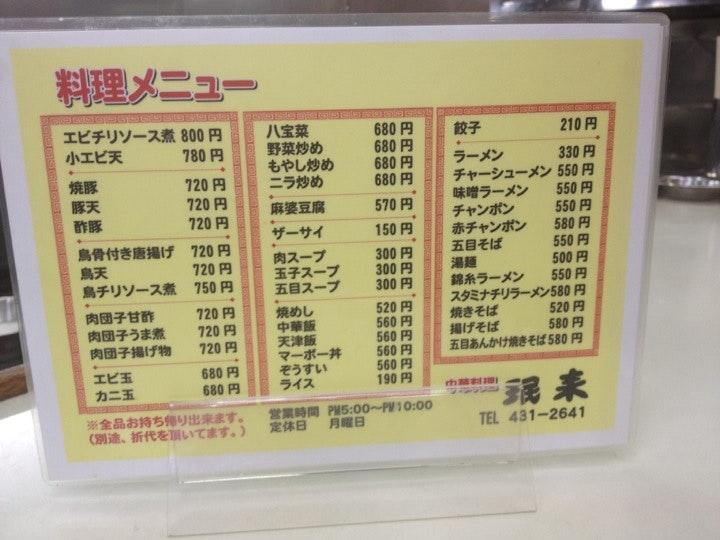 料理メニュー
エビチリソース煮 800円
小エビ天 780円
焼豚 720円
豚天 720円
酢豚 720円
鳥骨付き唐揚げ 720円
鳥天 720円
鳥チリソース煮 750円
肉団子甘酢 720円
肉団子うま煮 720円
肉団子揚げ物 720円
エビ玉 680円
カニ玉 680円
八宝菜 680円
野菜炒め 680円
もやし炒め 680円
ニラ炒め 680円
麻婆豆腐 570円
ザーサイ 150円
肉スープ 300円
玉子スープ 300円
五目スープ 300円
焼めし 520円
中華飯 560円
天津飯 560円
マーボー丼 560円
ぞうすい 560円
ライス 190円
餃子 210円
ラーメン 330円
チャーシューメン 550円
味噌ラーメン 550円
チャンポン 550円
赤チャンポン 580円
五目そば 550円
湯麺 500円
錦糸ラーメン 550円
スタミナチリラーメン 580円
焼きそば 520円
揚げそば 580円
五目あんかけ焼きそば 580円
※全品お持ち帰り出来ます。
(別途、折代を頂いてます。)
営業時間 PM5:00〜PM10:00
定休日 月曜日
中華料理 珉来
TEL 431-2641